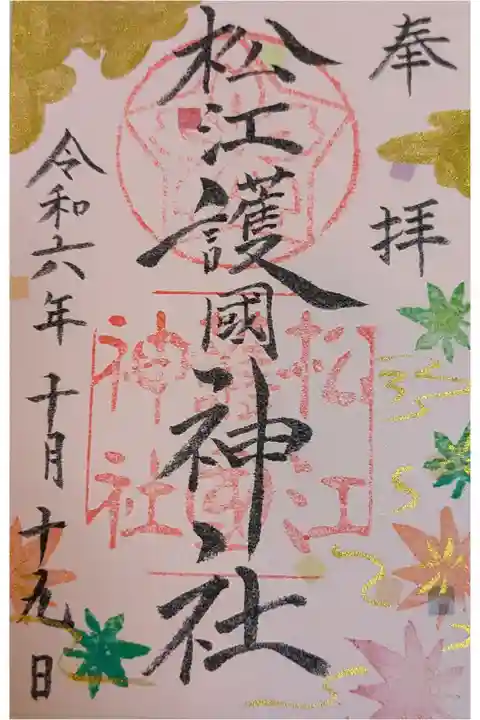 奉拝
松江護國神社
令和六年十月十九日
松江
護国
神社